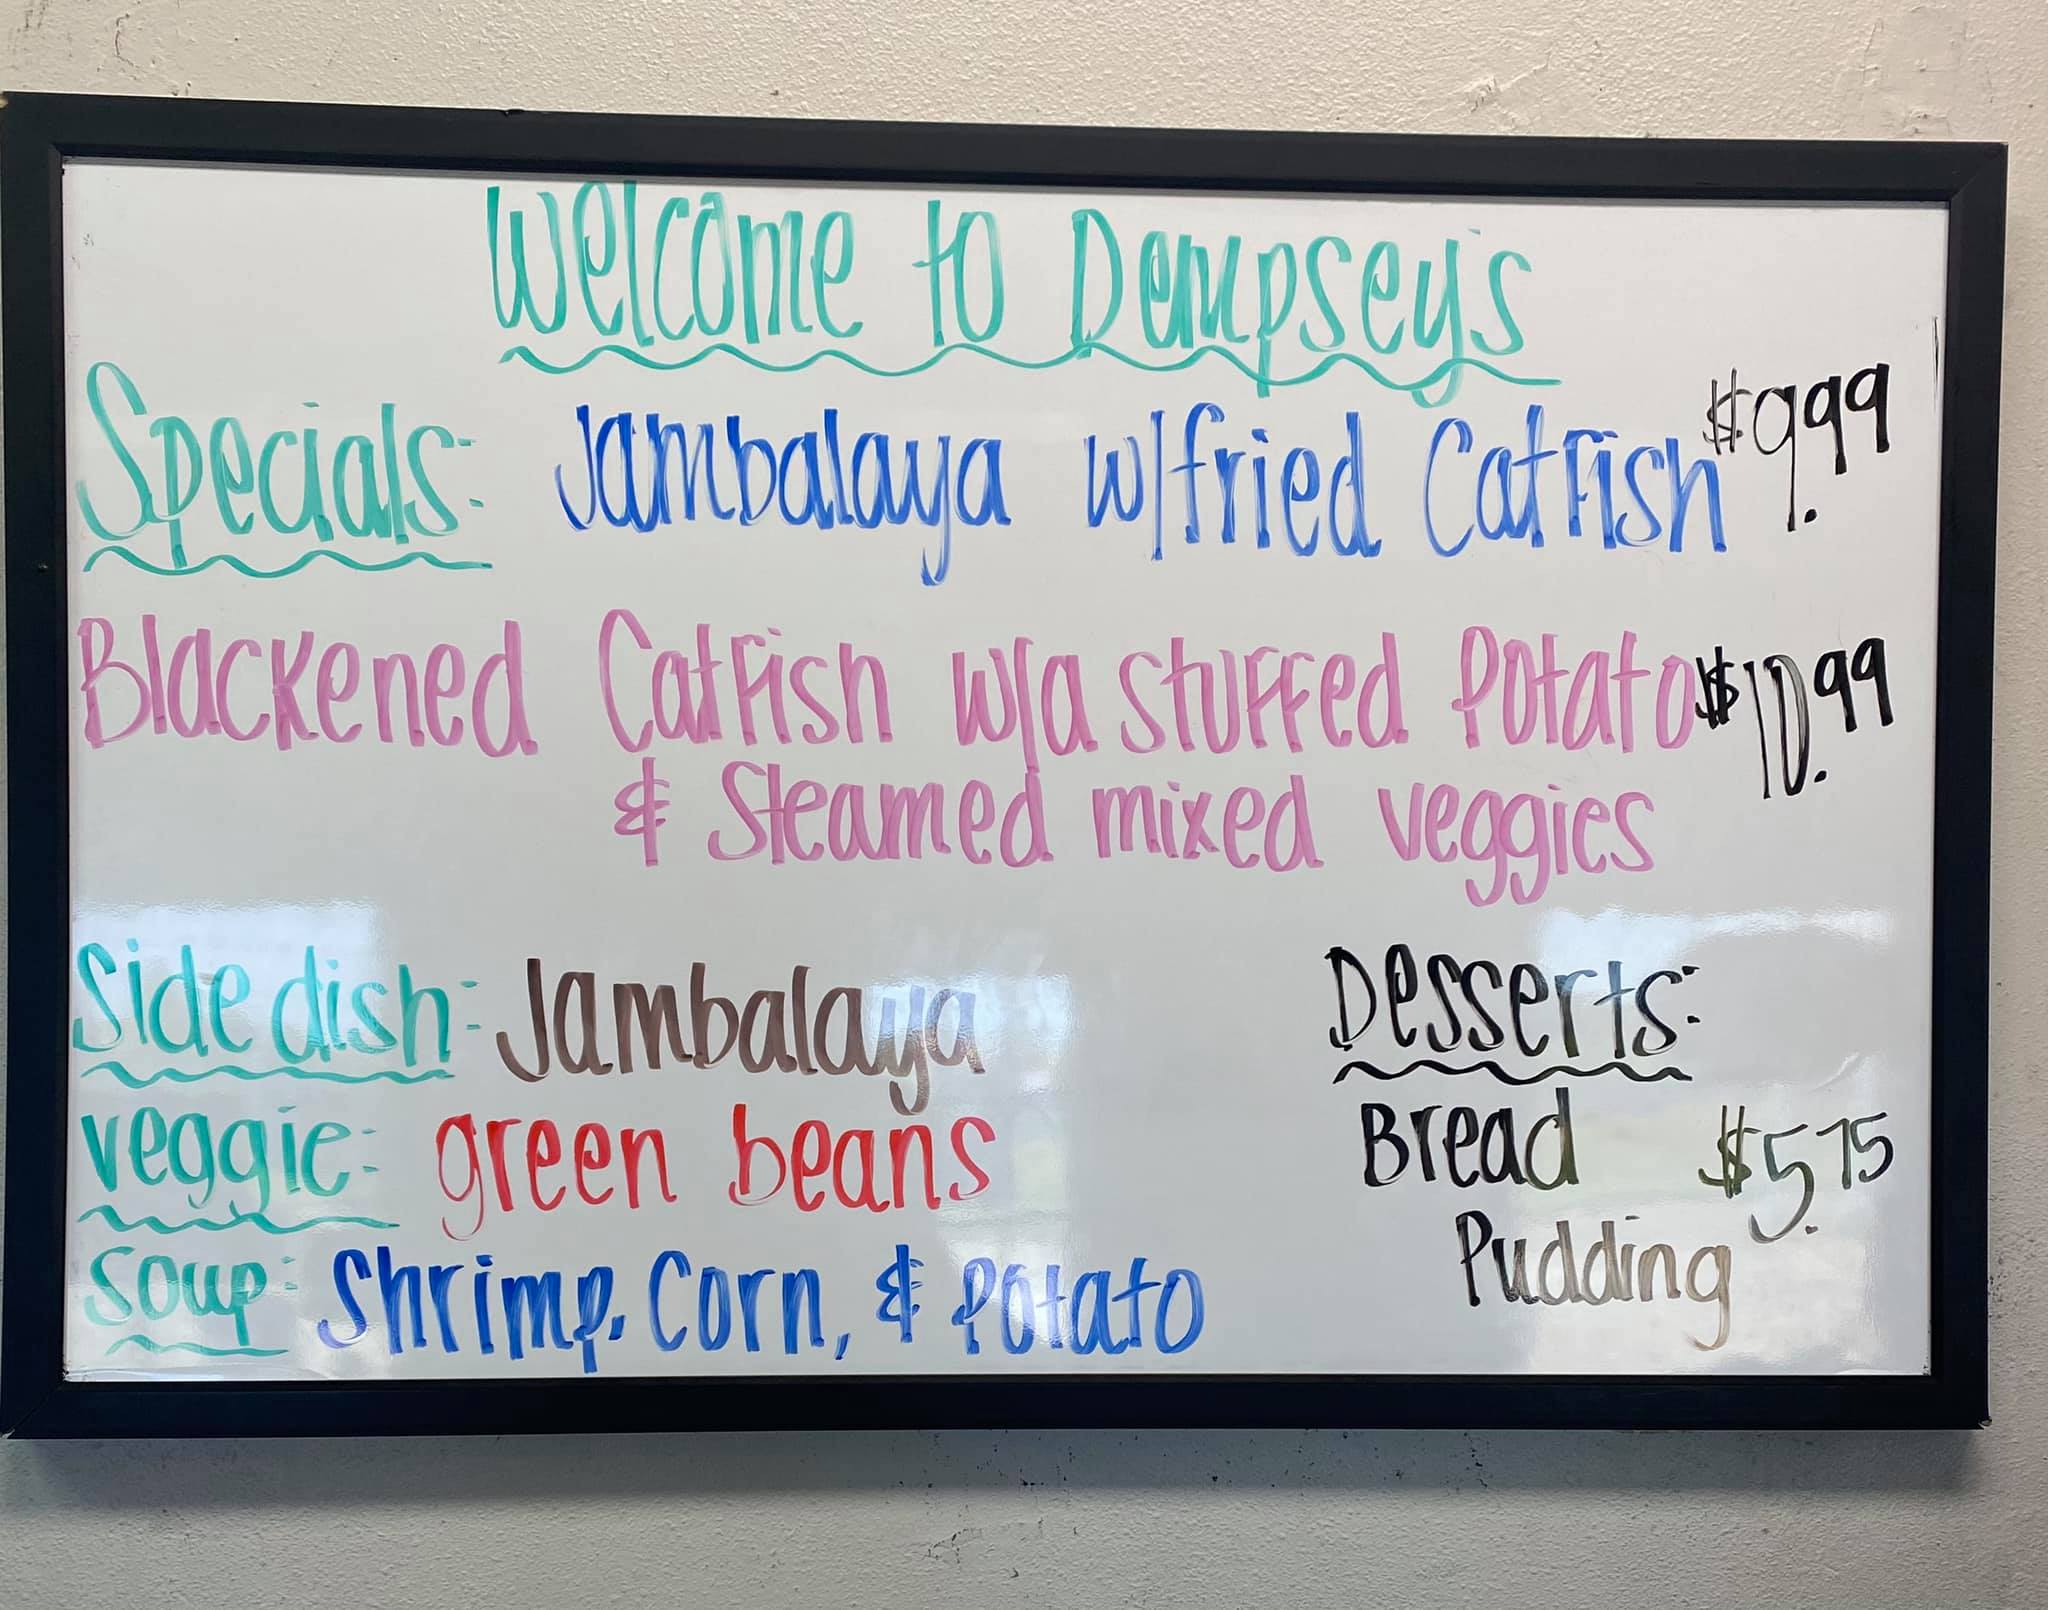 Welcome to Dempsey's
Specials: Jambalaya w/fried Catfish $9.99
Blackened Catfish w/a stuffed Potato $10.99
& Steamed mixed veggies
Side dish: Jambalaya
Desserts:
veggie: green beans
Bread $5.75
Pudding
Soup: Shrimp, Corn, & Potato